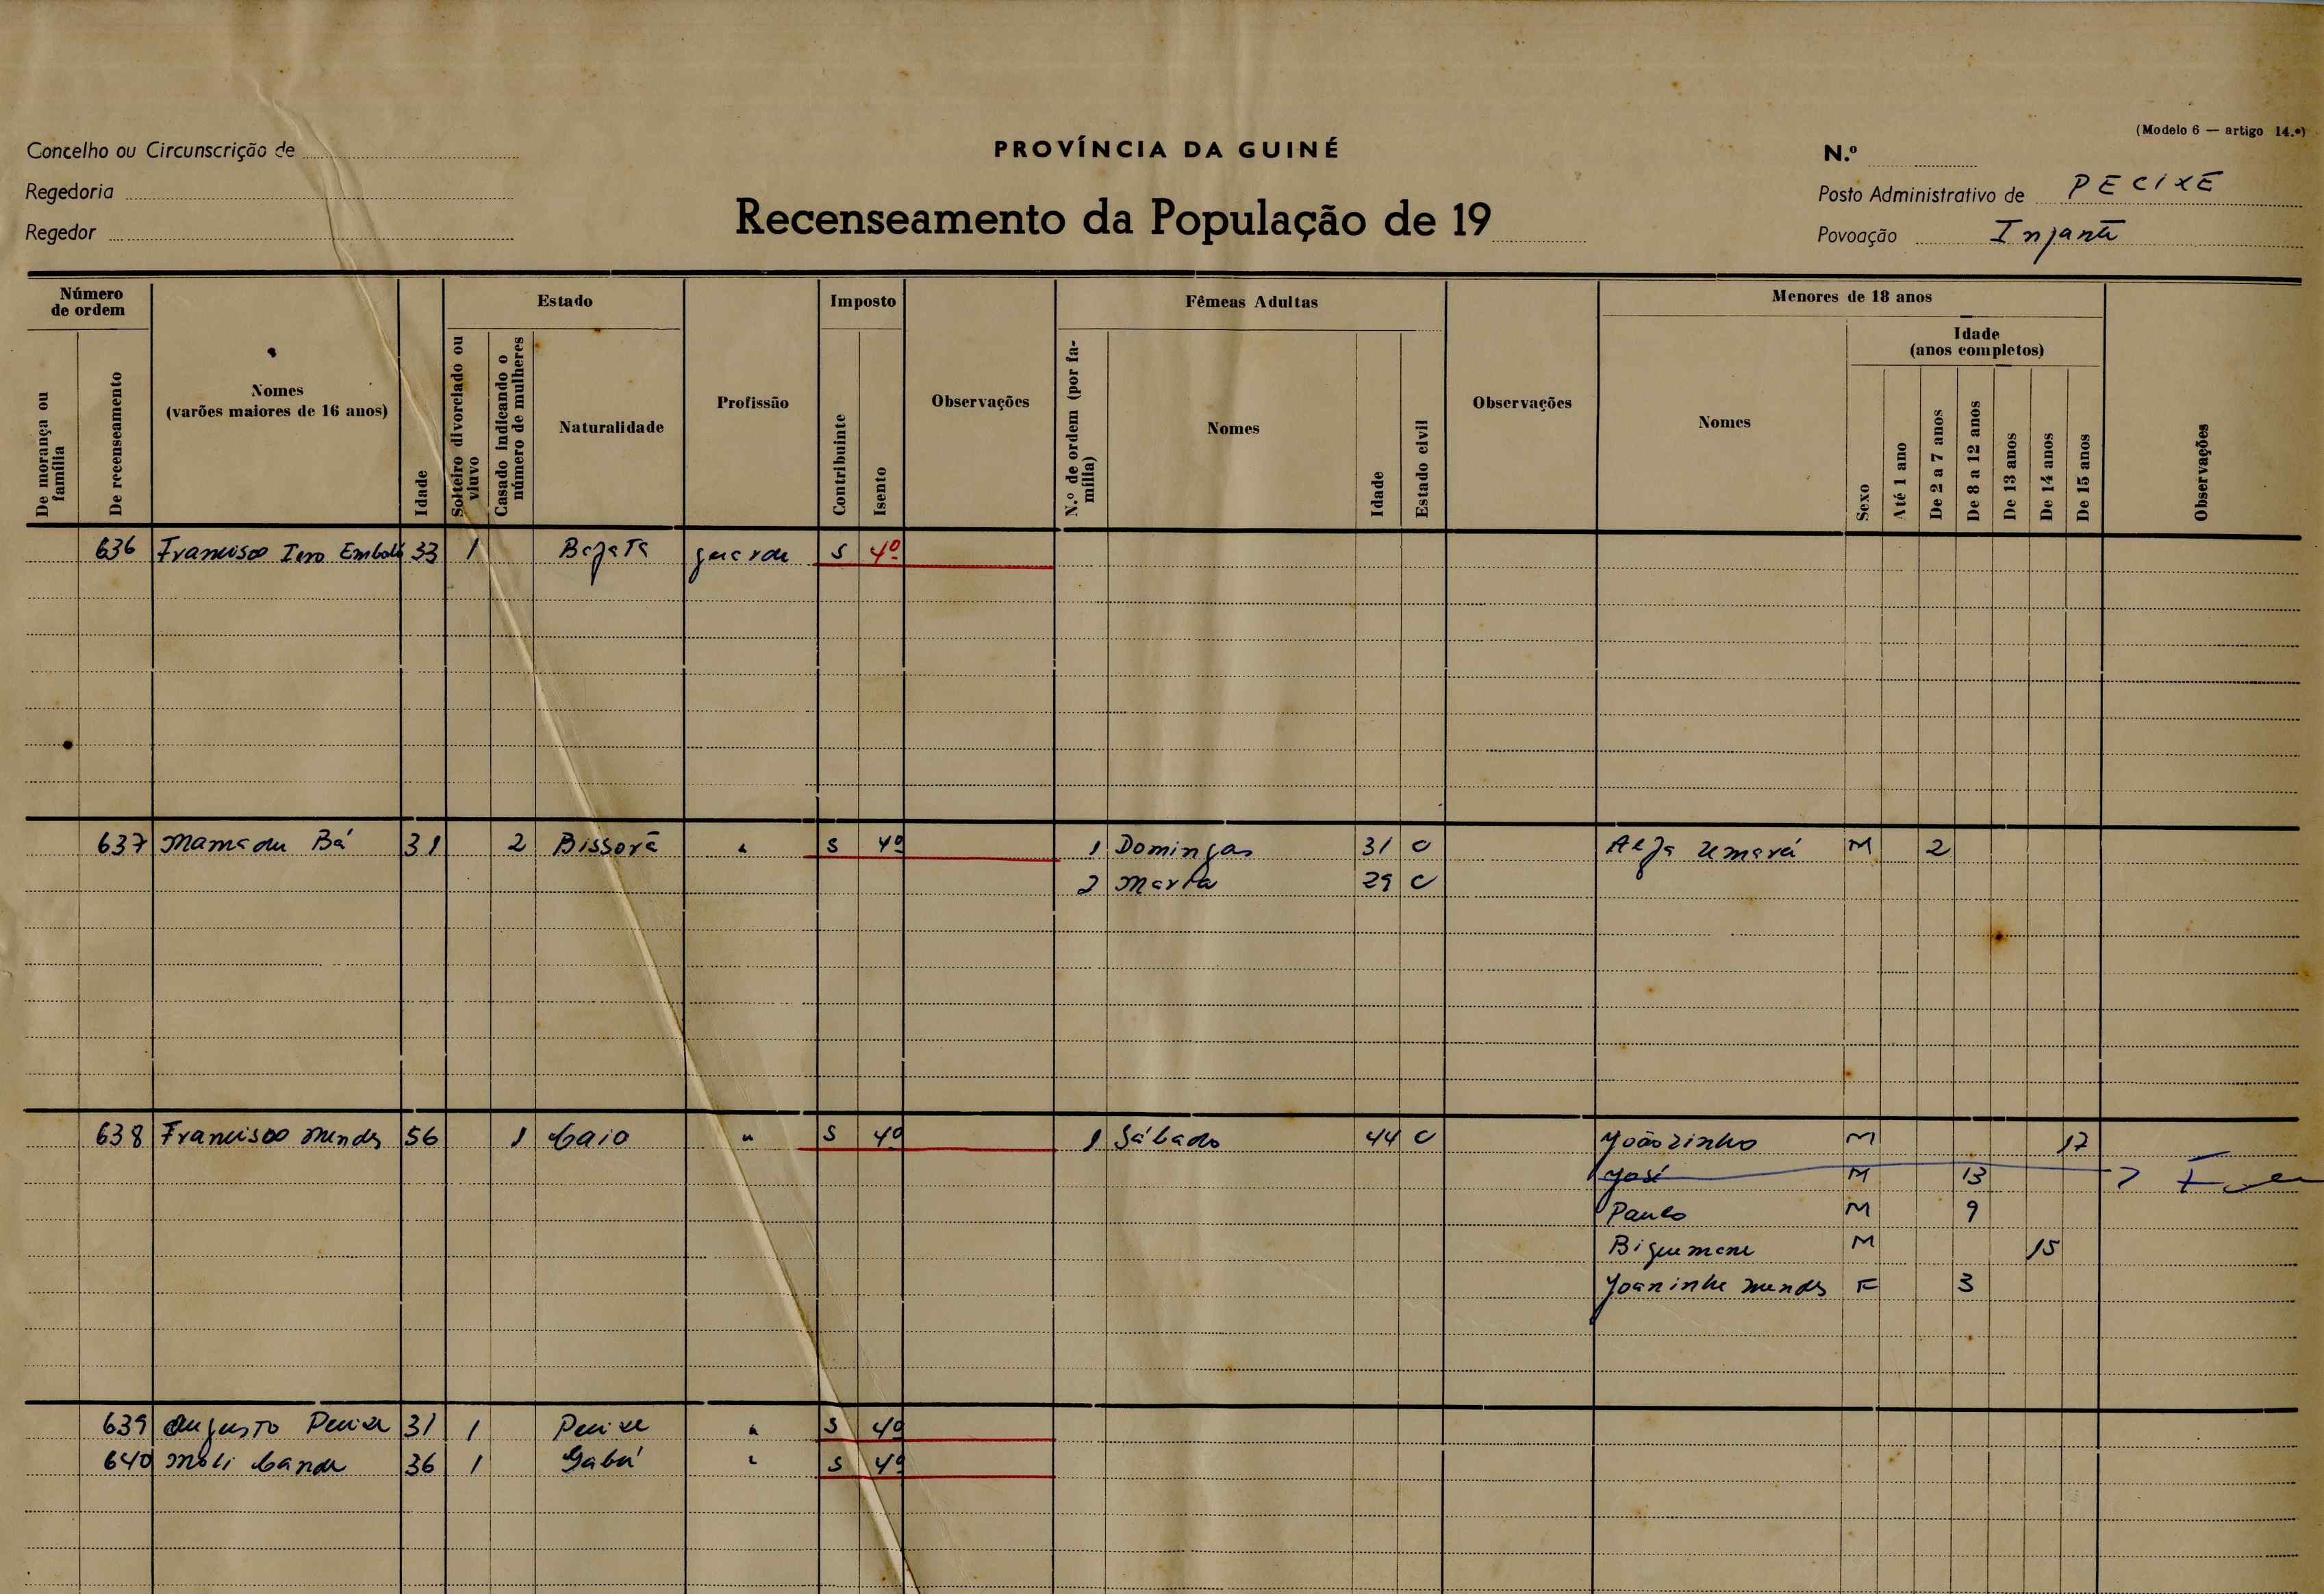 (Modelo 6 — artigo 14.º)
Concelho ou Circunscrição de
PROVÍNCIA DA GUINÉ
N.º
Regedoria
Recenseamento da População de 19
Posto Administrativo de PECIXE
Regedor
Povoação
Número de ordem
Estado
Imposto
Fêmeas Adultas
Menores de 18 anos
De morança ou família
De recenseamento
Nomes
(varões maiores de 16 anos)
Idade
Solteiro divorciado ou viuvo
Casado indicando o número de mulheres
Naturalidade
Profissão
Contribuinte
Isento
Observações
N.º de ordem (por família)
Nomes
Idade
Estado civil
Observações
Nomes
Sexo
Idade
(anos completos)
Até 1 ano
De 2 a 7 anos
De 8 a 12 anos
De 13 anos
De 14 anos
De 15 anos
Observações
636 Francisco Iero Embaló 33 1 Bafatá guarda S 4º
637 Mamadu Bá 31 2 Bissorã " S 4º 1 Domingas 31 C Alfa Umaru M 2
2 Maria 29 C
638 Francisco Mendes 56 1 Caio " S 4º 1 Sábado 44 C Joãozinho M 17
José M 13
Paulo M 9
M 15
Joaninha Mendes F 3
639 Augusto Pecixe 31 1 Pecixe " S 4º
640 Cande 36 1 Gabú " S 4º